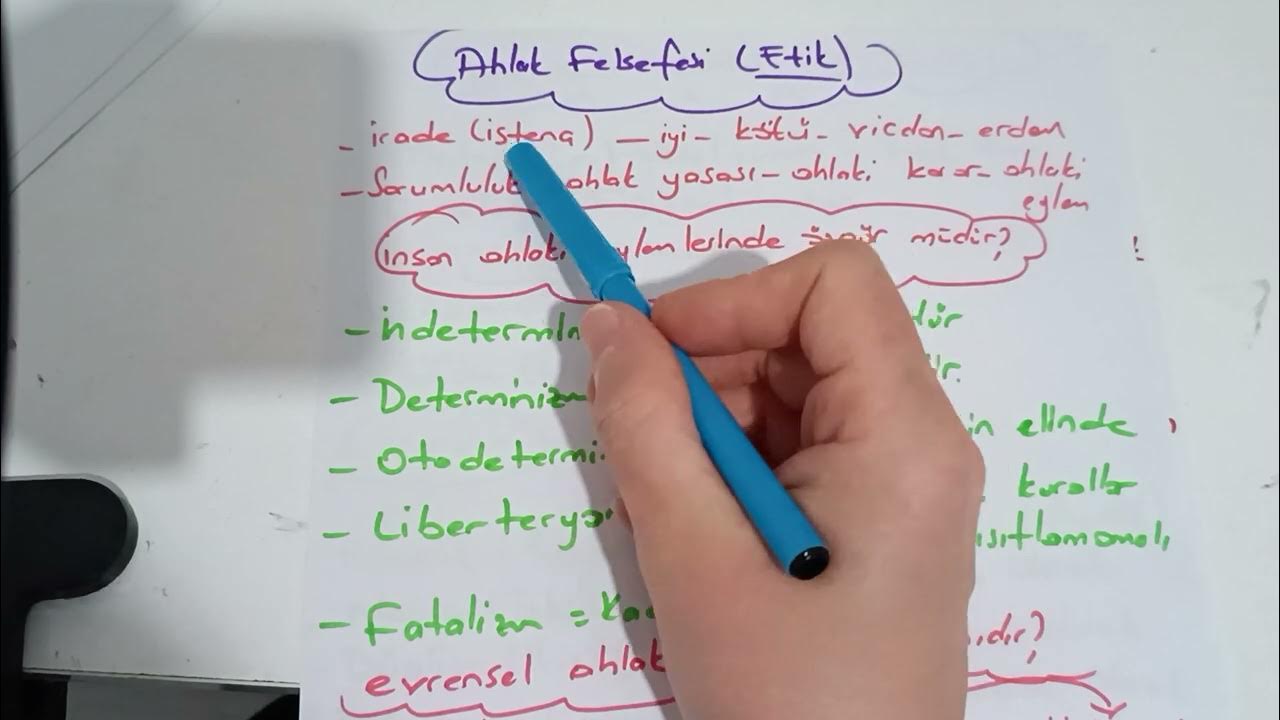 Ahlak Felsefesi (Etik)
- irade (istenç) - iyi - kötü - vicdan - erdem
- Sorumluluk ahlak yasası - ahlaki karar - ahlaki
eylem
insan ahlaki eylemlerinde özgür müdür? !
- indetermin dür
- Determinizm ür.
- Otodetermi in elinde
- Liberterya kurallar
ısıtlamamalı
- Fatalizm = Ka
evrensel ahlak ıdır?